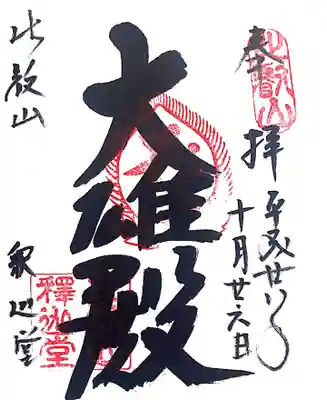 比叡山
奉拝
平成廿八年
十月廿六日
大雄殿
比叡山
釈迦堂
釋迦堂